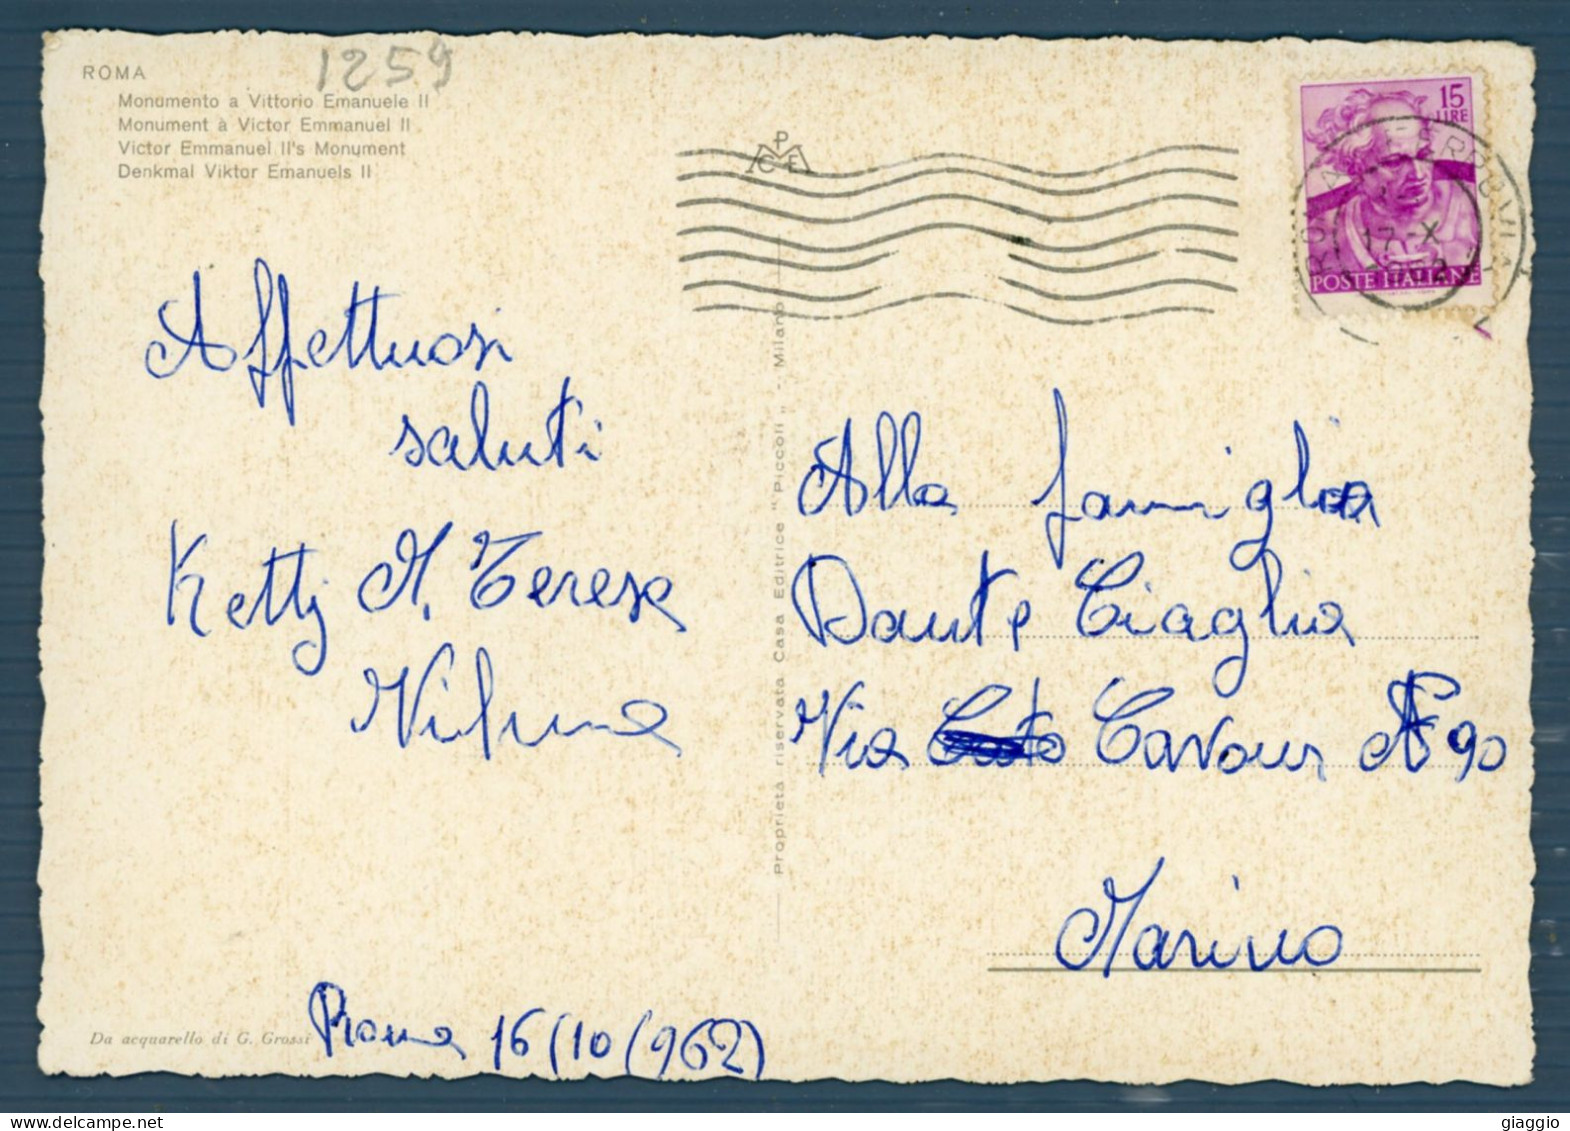 ROMA
1259
Monumento a Vittorio Emanuele II
Monument à Victor Emmanuel II
Victor Emmanuel II's Monument
Denkmal Viktor Emanuels II
P
C E
15
LIRE
ROMA FERROVIA
17 X
POSTE ITALIANE
Affettuosi
saluti
Ketty M. Teresa
Wilma
Proprietà riservata Casa Editrice "Piccoli" - Milano
Alla famiglia
Dante Ciaglia
Via Cavour N° 90
Marino
Da acquarello di G. Grossi
Roma 16/10/962
giaggio